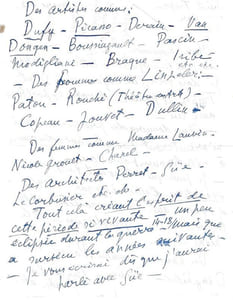 Des artistes comme:
Dufy - Picano - Derain - Van
Dongen - Boussingault - Pascin -
Modigliani - Braque - Iribe
etc. etc.
Des hommes comme Linzeler:
Paton - Rouché (Théâtre des Arts) -
Copeau - Jouvet - Dullin
Des femmes comme Madame Lanvin -
Nicole Groult - Chanel -
Des architectes Perret - Süe -
Le Corbusier etc. etc.
Tout cela créant l'esprit de
cette période si vivante - un peu
éclipsée durant la guerre 14-18/mais que
a survécu les années suivantes -
- Je vous écrirai dès que j'aurai
parlé avec Süe -